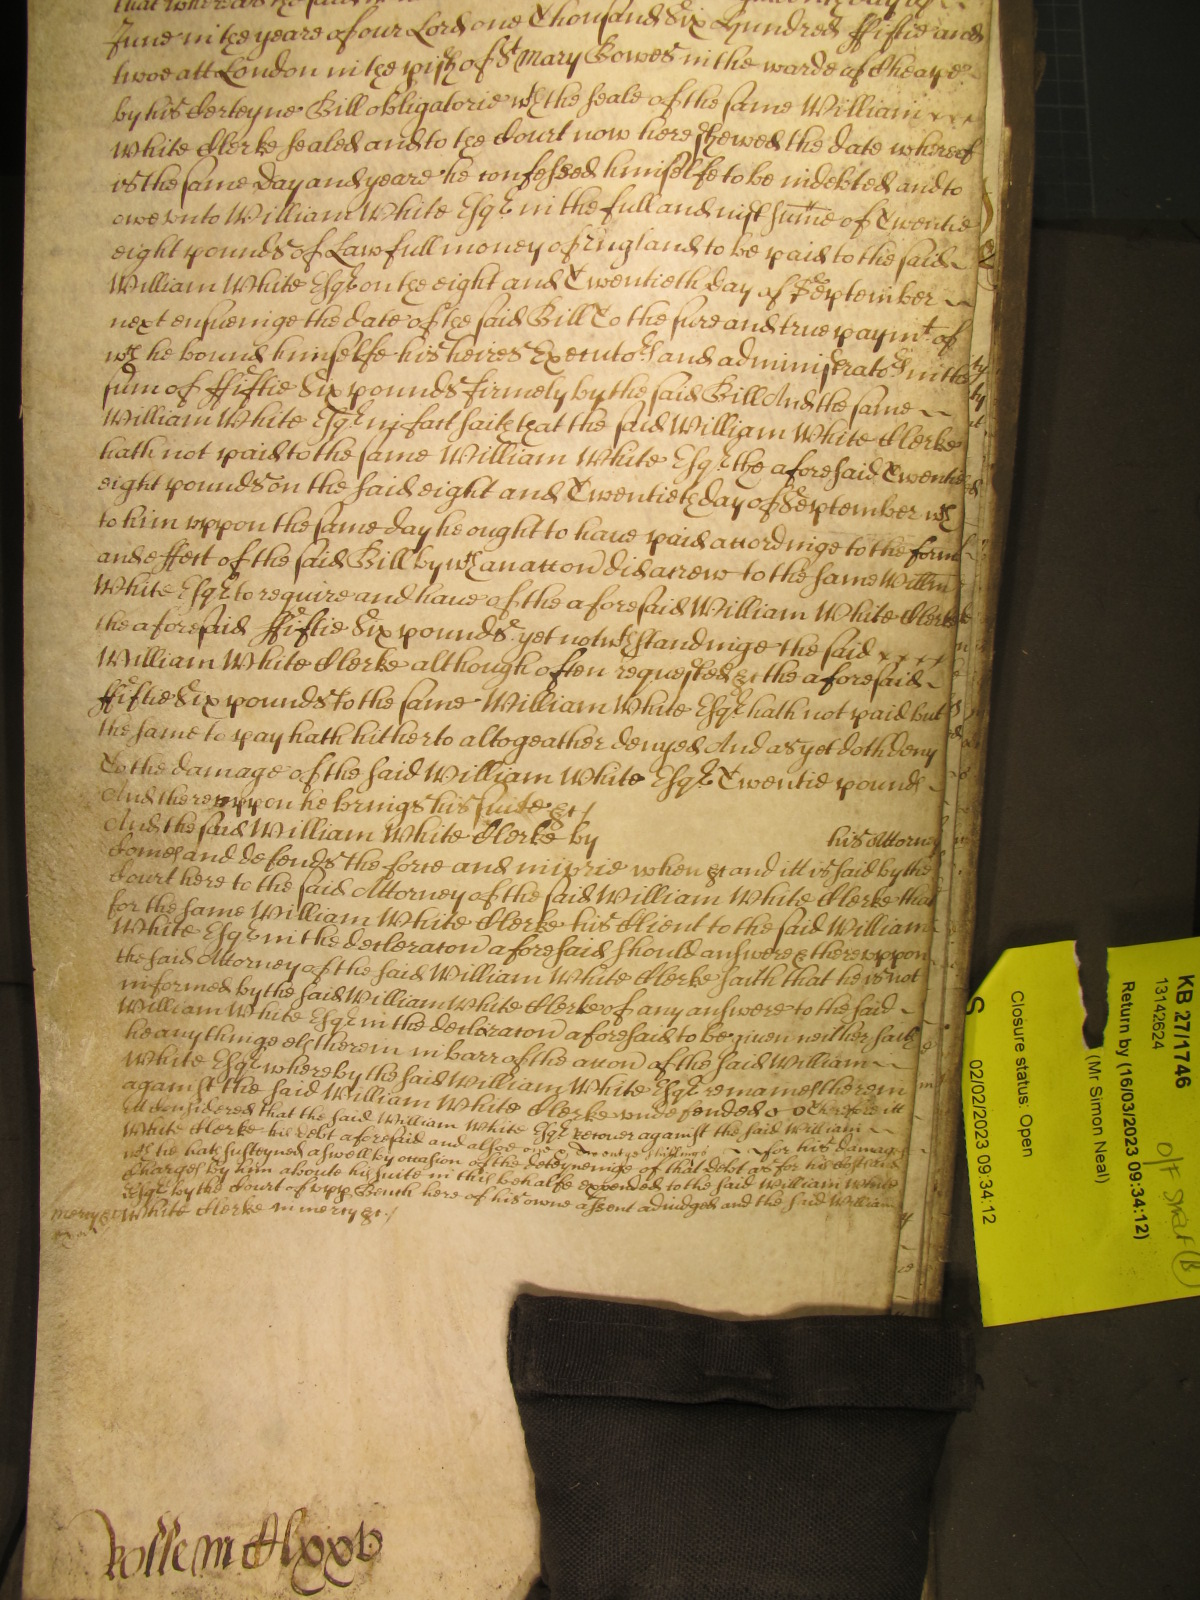 that whereas the said
June in the yeare of our Lord one Thousand Six Hundred ffiftie and
twoe att London in the pish of St Mary Bowes in the warde of Cheape
by his Certeyne Bill obligatorie wth the seale of the same William
White Clerke sealed and to the Court now here shewed the date whereof
is the same day and yeare he confessed himselfe to be indebted and to
owe unto William White Esqr in the full and iust summe of Twentie
eight pounds of Lawfull money of England to be paid to the said
William White Esqr on the eight and Twentieth day of September
next ensueinge the date of the said Bill To the sure and true paymt of
wch he bound himselfe his heires Executors and administrators in the
sum of ffiftie Six pounds firmely by the said Bill And the same
William White Esqr in fact saith that the said William White Clerke
hath not paid to the same William White Esqr the aforesaid Twentie
eight pounds on the said eight and Twentieth day of September wch
to him uppon the same day he ought to have paid accordinge to the form
and effect of the said Bill by wch an accon did accrew to the same Willm
White Esqr to require and have of the aforesaid William White Clerke
the aforesaid ffiftie Six pounds yet notwthstandinge the said
William White Clerke although often requested &c the aforesaid
ffiftie Six pounds to the same William White Esqr hath not paid but
the same to pay hath hitherto altogeather denyed And as yet doth deny
To the damage of the said William White Esqr Twentie pounds
And thereuppon he brings his suite &c /
And the said William White Clerke by his Attorney
Comes and defends the force and iniurie when &c and itt is said by the
Court here to the said Attorney of the said William White Clerke that
for the same William White Clerke his Client to the said William
White Esqr in the declaracon aforesaid should answere &thereuppon
the said Attorney of the said William White Clerke saith that he is not
informed by the said William White Clerke of any answere to the said
William White Esqr in the declaracon aforesaid to be given neither saith
he any thinge els therein in barr of the accon of the said William
White Esqr whereby the said William White Esqr remaines therein
against the said William White Clerke undefended &c Therefore itt
is Considered that the said William White Esqr recover against the said William
White Clerke his debt aforesaid and alsoe one & Twentye shillings for his damages
wch he hath susteyned aswell by occasion of the deteyneinge of that debt as for his Costs and
Charges by him aboute his suite in this behalfe expended to the said William White
Esqr by the Court of upp Bench here of his owne assent adiudged and the said William
mercy &c White Clerke in mercy &c /
Rolle m Clxxv
KB 27/1746
13142624
Return by (16/03/2023 09:34:12)
(Mr Simon Neal)
Closure status: Open
02/02/2023 09:34:12
S